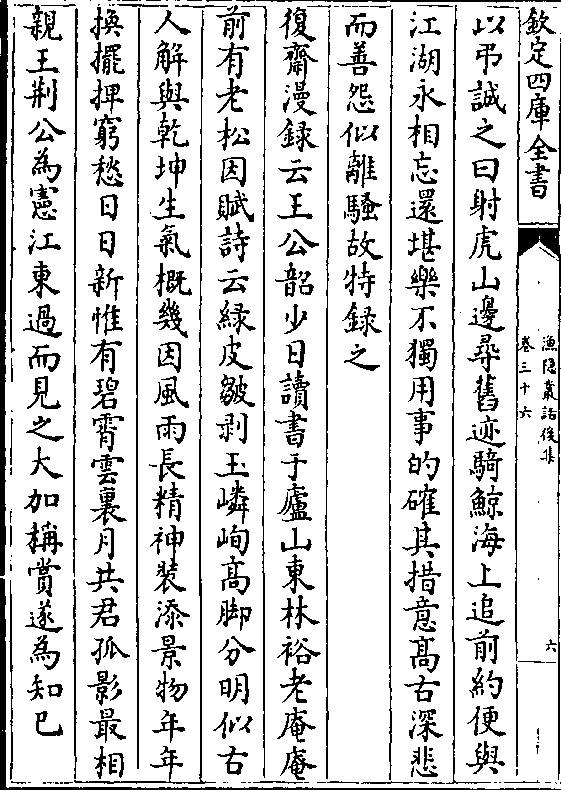 欽定四庫全書
漁隠叢話後集
卷三十六
六
以弔誠之曰射虎山邊尋舊迹騎鯨海上追前約便與
江湖永相忘還堪樂不獨用事的確其措意髙古深悲
而善怨似離騷故特録之
復齋漫録云王公韶少日讀書于廬山東林裕老庵庵
前有老松因賦詩云緑皮皴剥玉嶙峋髙脚分明似古
人解與乾坤生氣概幾因風雨長精神裝添景物年年
換擺捭窮愁日日新惟有碧霄雲裏月共君孤影最相
親王荆公為憲江東過而見之大加稱賞遂為知己